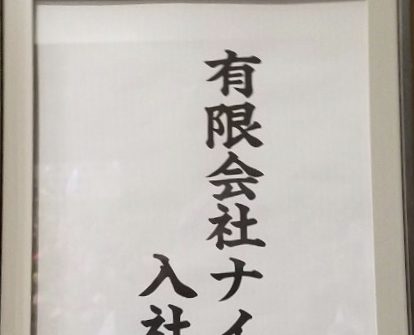 有限会社ナイ
入社